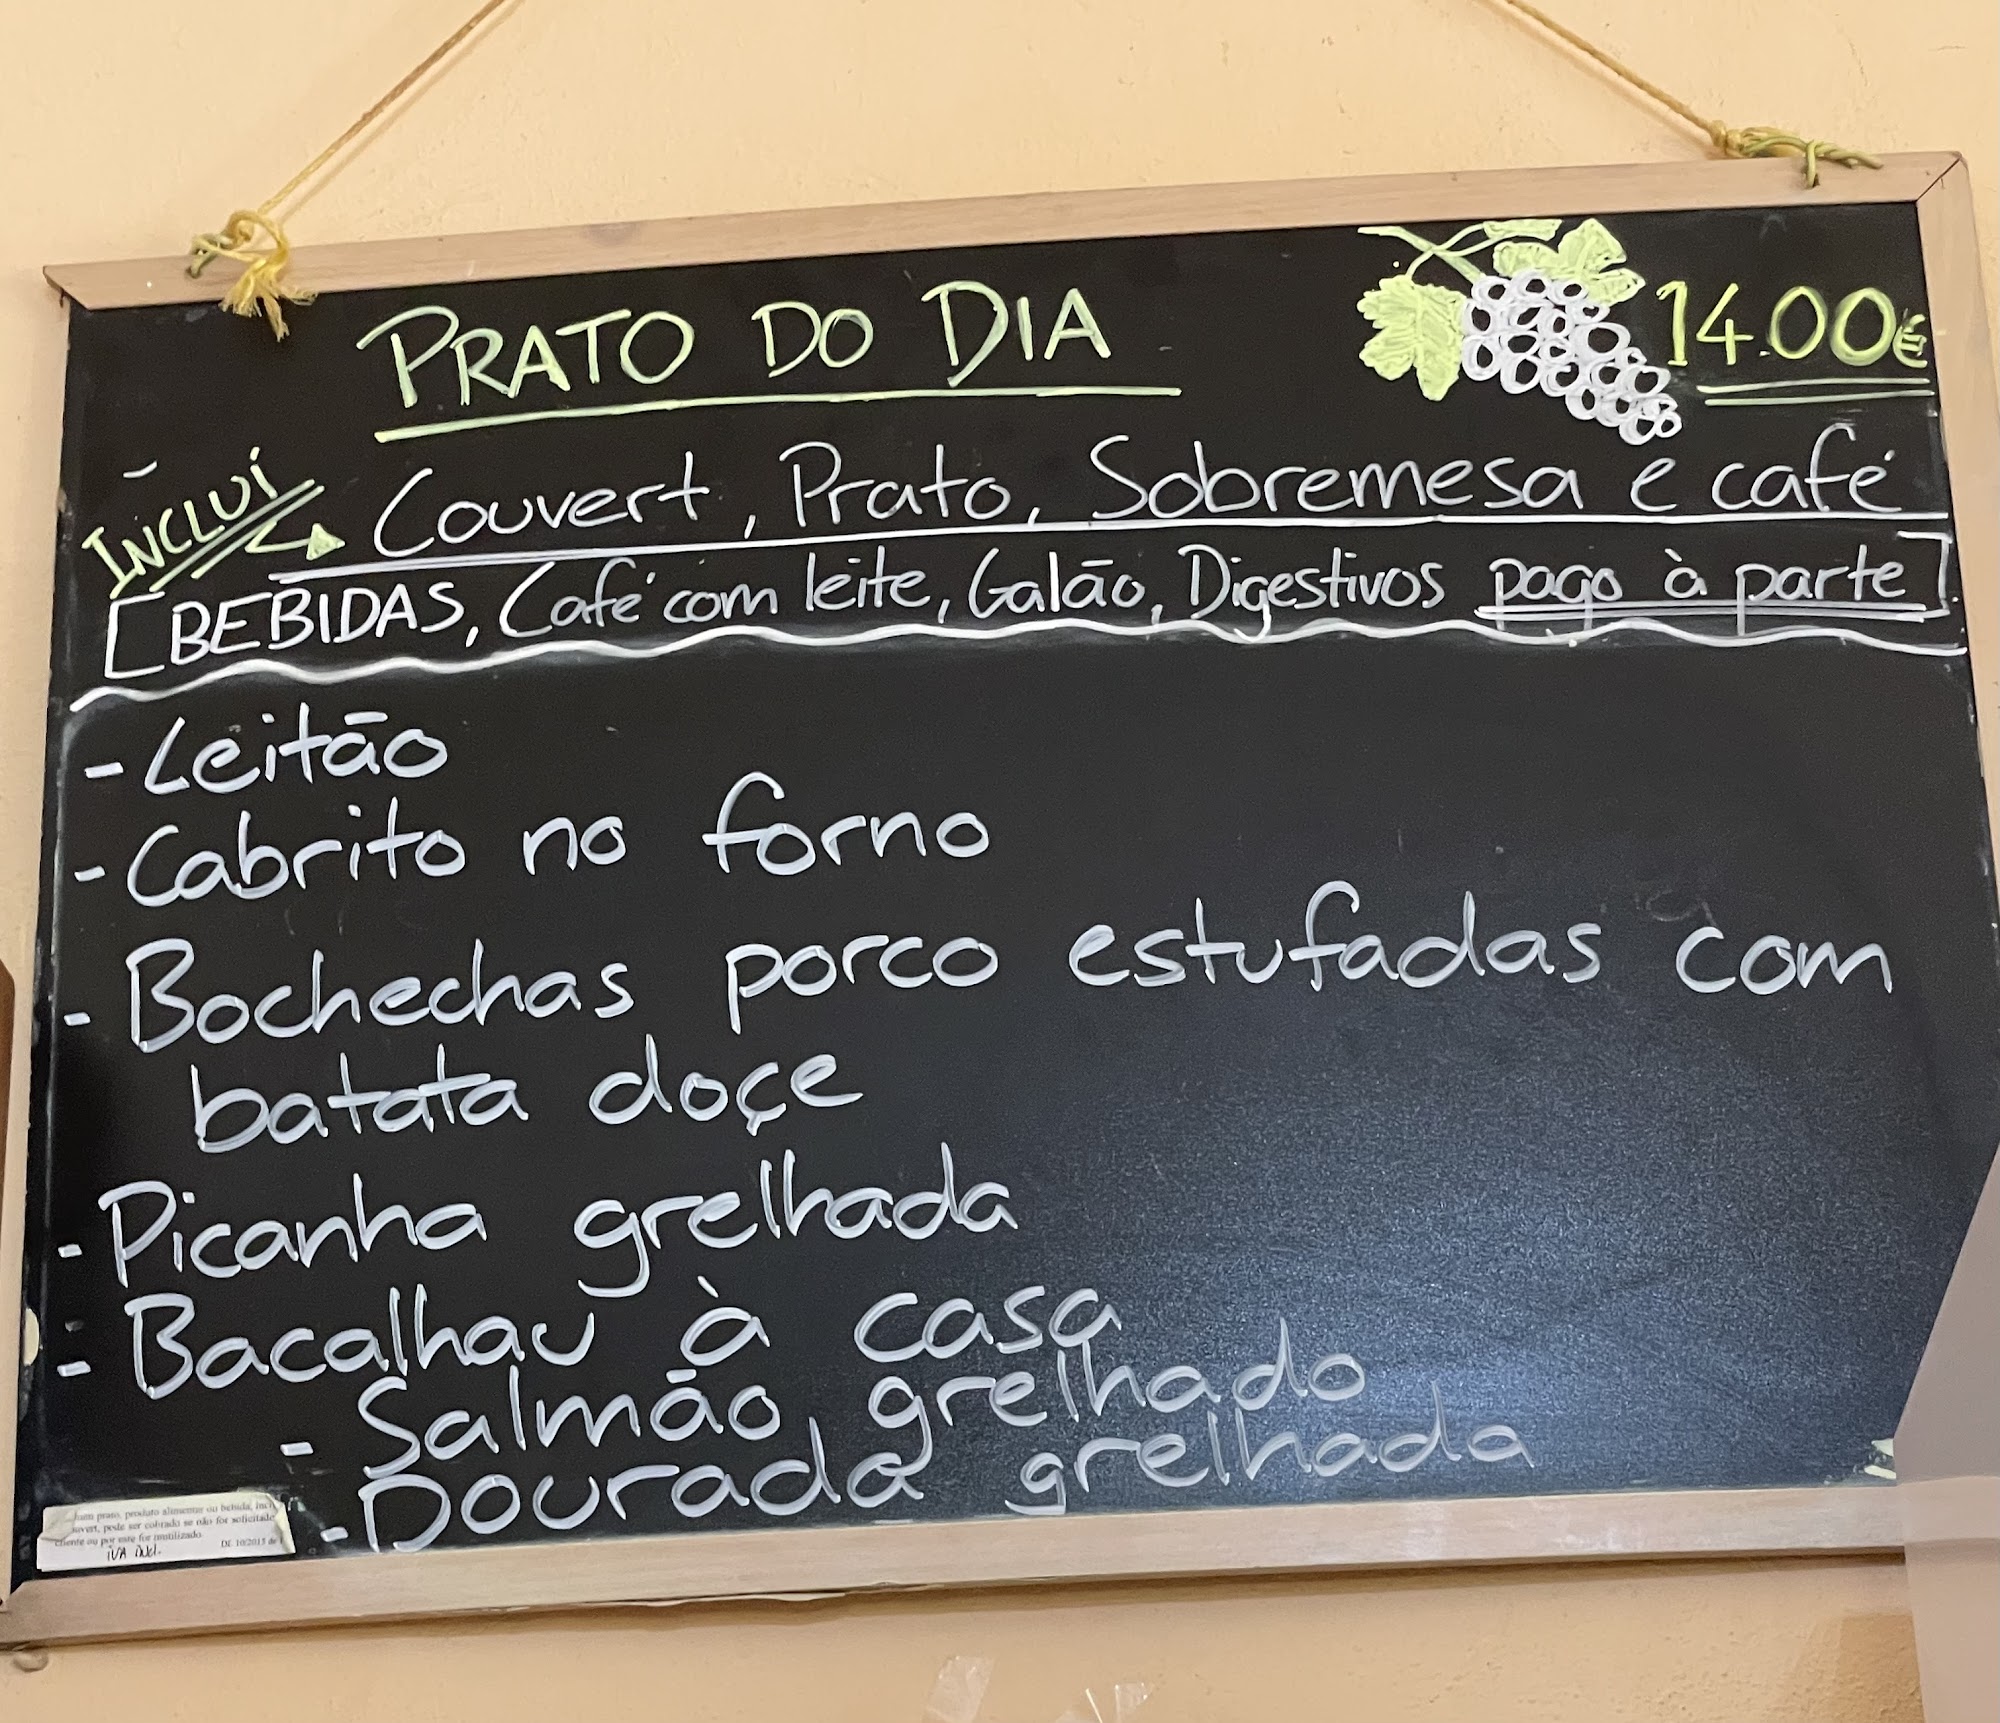 PRATO DO DIA 14.00€
INCLUI Couvert, Prato, Sobremesa e café
[BEBIDAS, Café com leite, Galão, Digestivos pago à parte]
- Leitão
- Cabrito no forno
- Bochechas porco estufadas com
batata doçe
- Picanha grelhada
- Bacalhau à casa
- Salmão grelhado
- Dourada grelhada
prato, produto alimentar ou bebida,
pode ser cobrado se não for solicitado
cliente ou por este for inutilizado.
DL 10/2015 de
IVA incl.